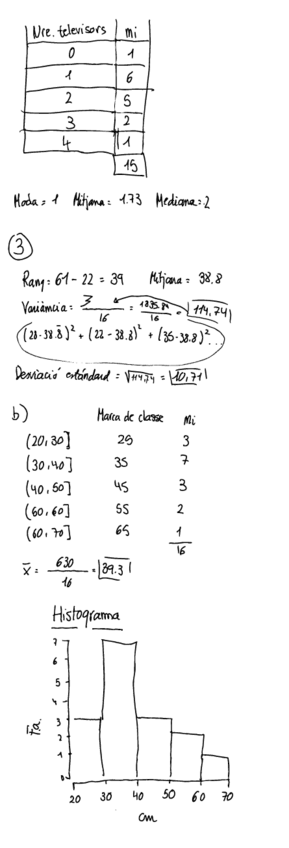 Nre. televisors mi
0 1
1 6
2 5
3 2
4 1
15
Moda = 1 Mitjana = 1.73 Mediana = 2
3
Rang = 61 - 22 = 39 Mitjana = 38,8
Variància = Σ/16 = 1835.84/16 = 114,74
(28-38.8)² + (22-38.8)² + (35-38.8)² ...
Desviació estàndard = √114,74 = 10,71
b) Marca de classe mi
(20,30] 25 3
(30,40] 35 7
(40,50] 45 3
(50,60] 55 2
(60,70] 65 1
16
x̄ = 630/16 = 39.31
Histograma
7
6
5
4
3
2
1
0
20 30 40 50 60 70
cm